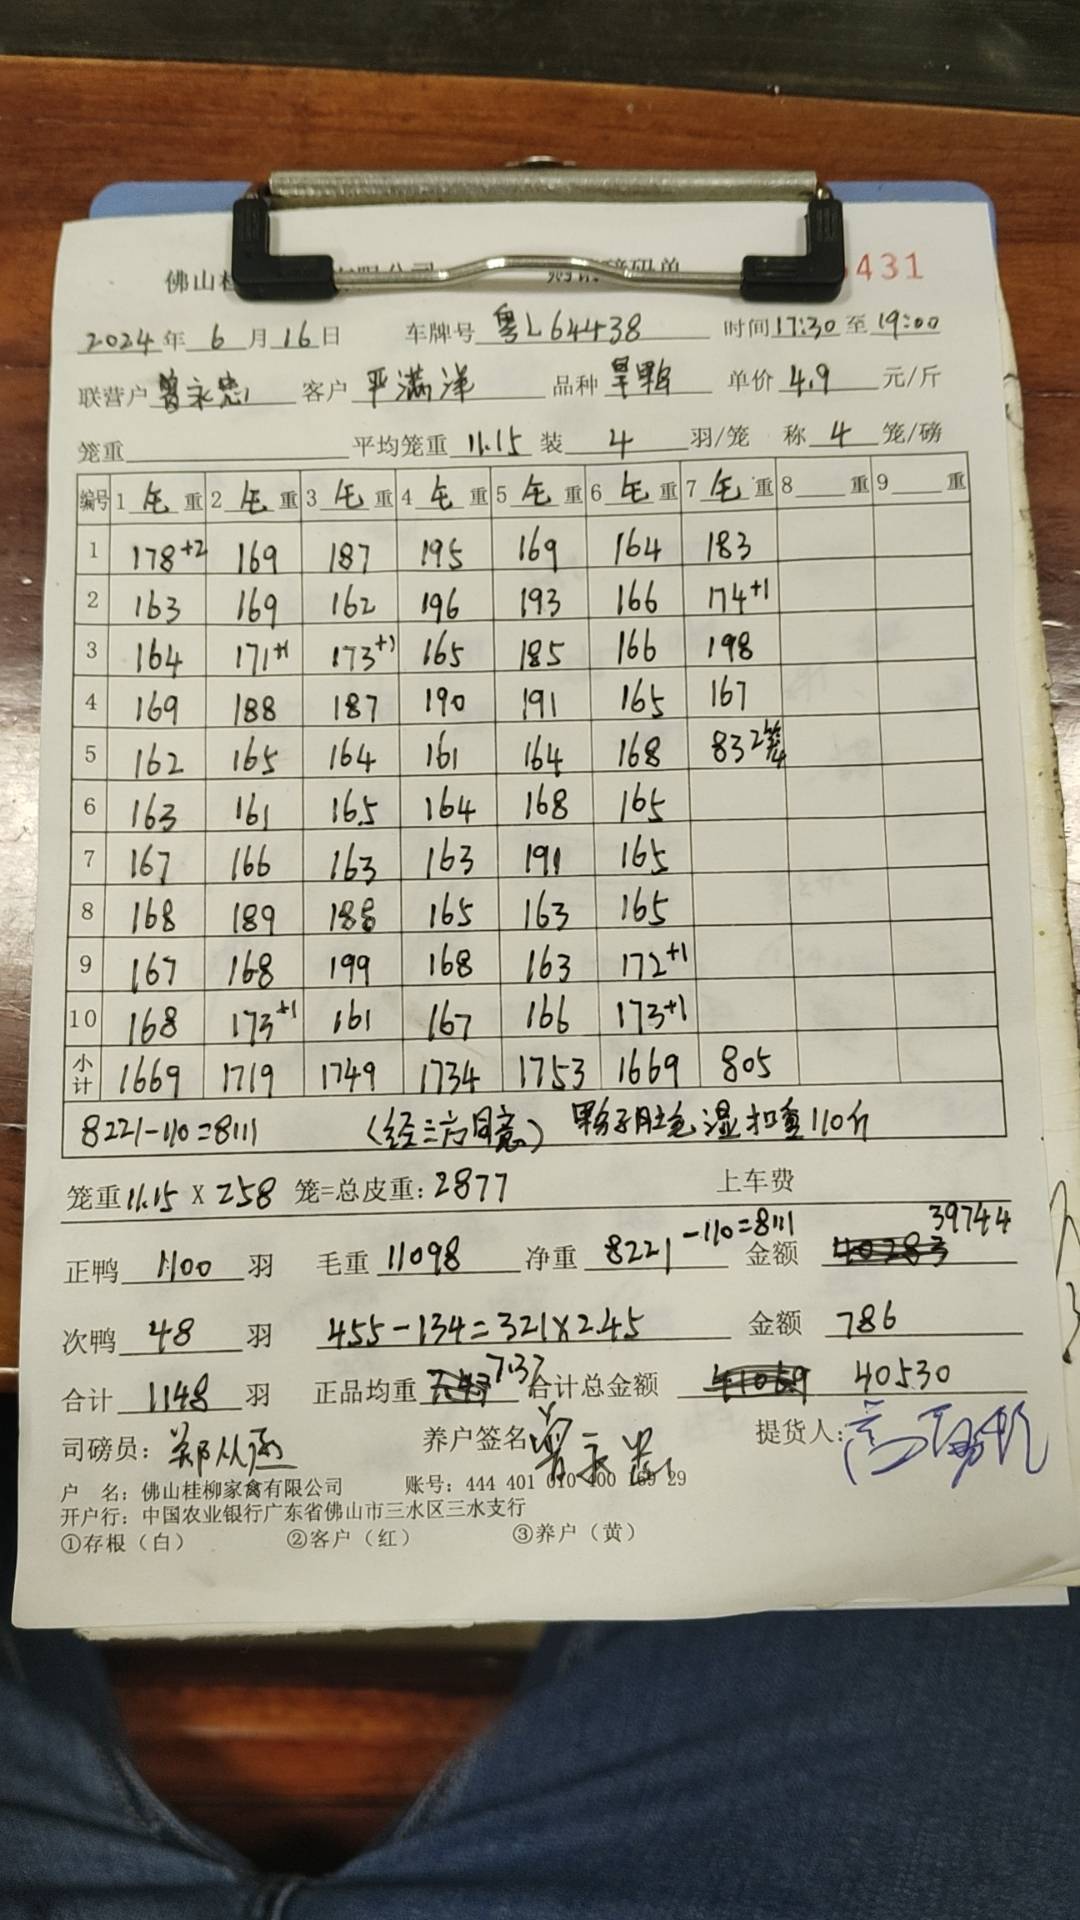 佛山桂 磅码单 431
2024年 6月16日 车牌号 粤L64438 时间17:30至19:00
联营户曾永忠 客户 严满洋 品种旱鸭 单价4.9 元/斤
笼重 平均笼重 11.15 装 4 羽/笼 称 4 笼/磅
编号 1毛重 2毛重 3毛重 4毛重 5毛重 6毛重 7毛重 8 重 9 重
1 178+2 169 187 195 169 164 183
2 163 169 162 196 193 166 174+1
3 164 171+1 173+1 165 185 166 198
4 169 188 187 190 191 165 167
5 162 165 164 161 164 168 83 2笼
6 163 161 165 164 168 165
7 167 166 163 163 191 165
8 168 189 188 165 163 165
9 167 168 199 168 163 172+1
10 168 173+1 161 167 166 173+1
小计 1669 1719 1749 1734 1753 1669 805
8221-110=8111 (经三六同意) 鸭子肚毛湿扣重110斤
笼重11.15 X 258 笼=总皮重:2877 上车费
正鸭 1100 羽 毛重 11098 净重 8221-110=8111 金额 40283 39744
次鸭 48 羽 455-134=321X2.45 金额 786
合计 1148 羽 正品均重 7.37 合计总金额 41069 40530
司磅员: 养户签名 曾永忠 提货人:
户 名:佛山桂柳家禽有限公司 账号:444 401 010 400 169 29
开户行:中国农业银行广东省佛山市三水区三水支行
①存根(白) ②客户(红) ③养户(黄)